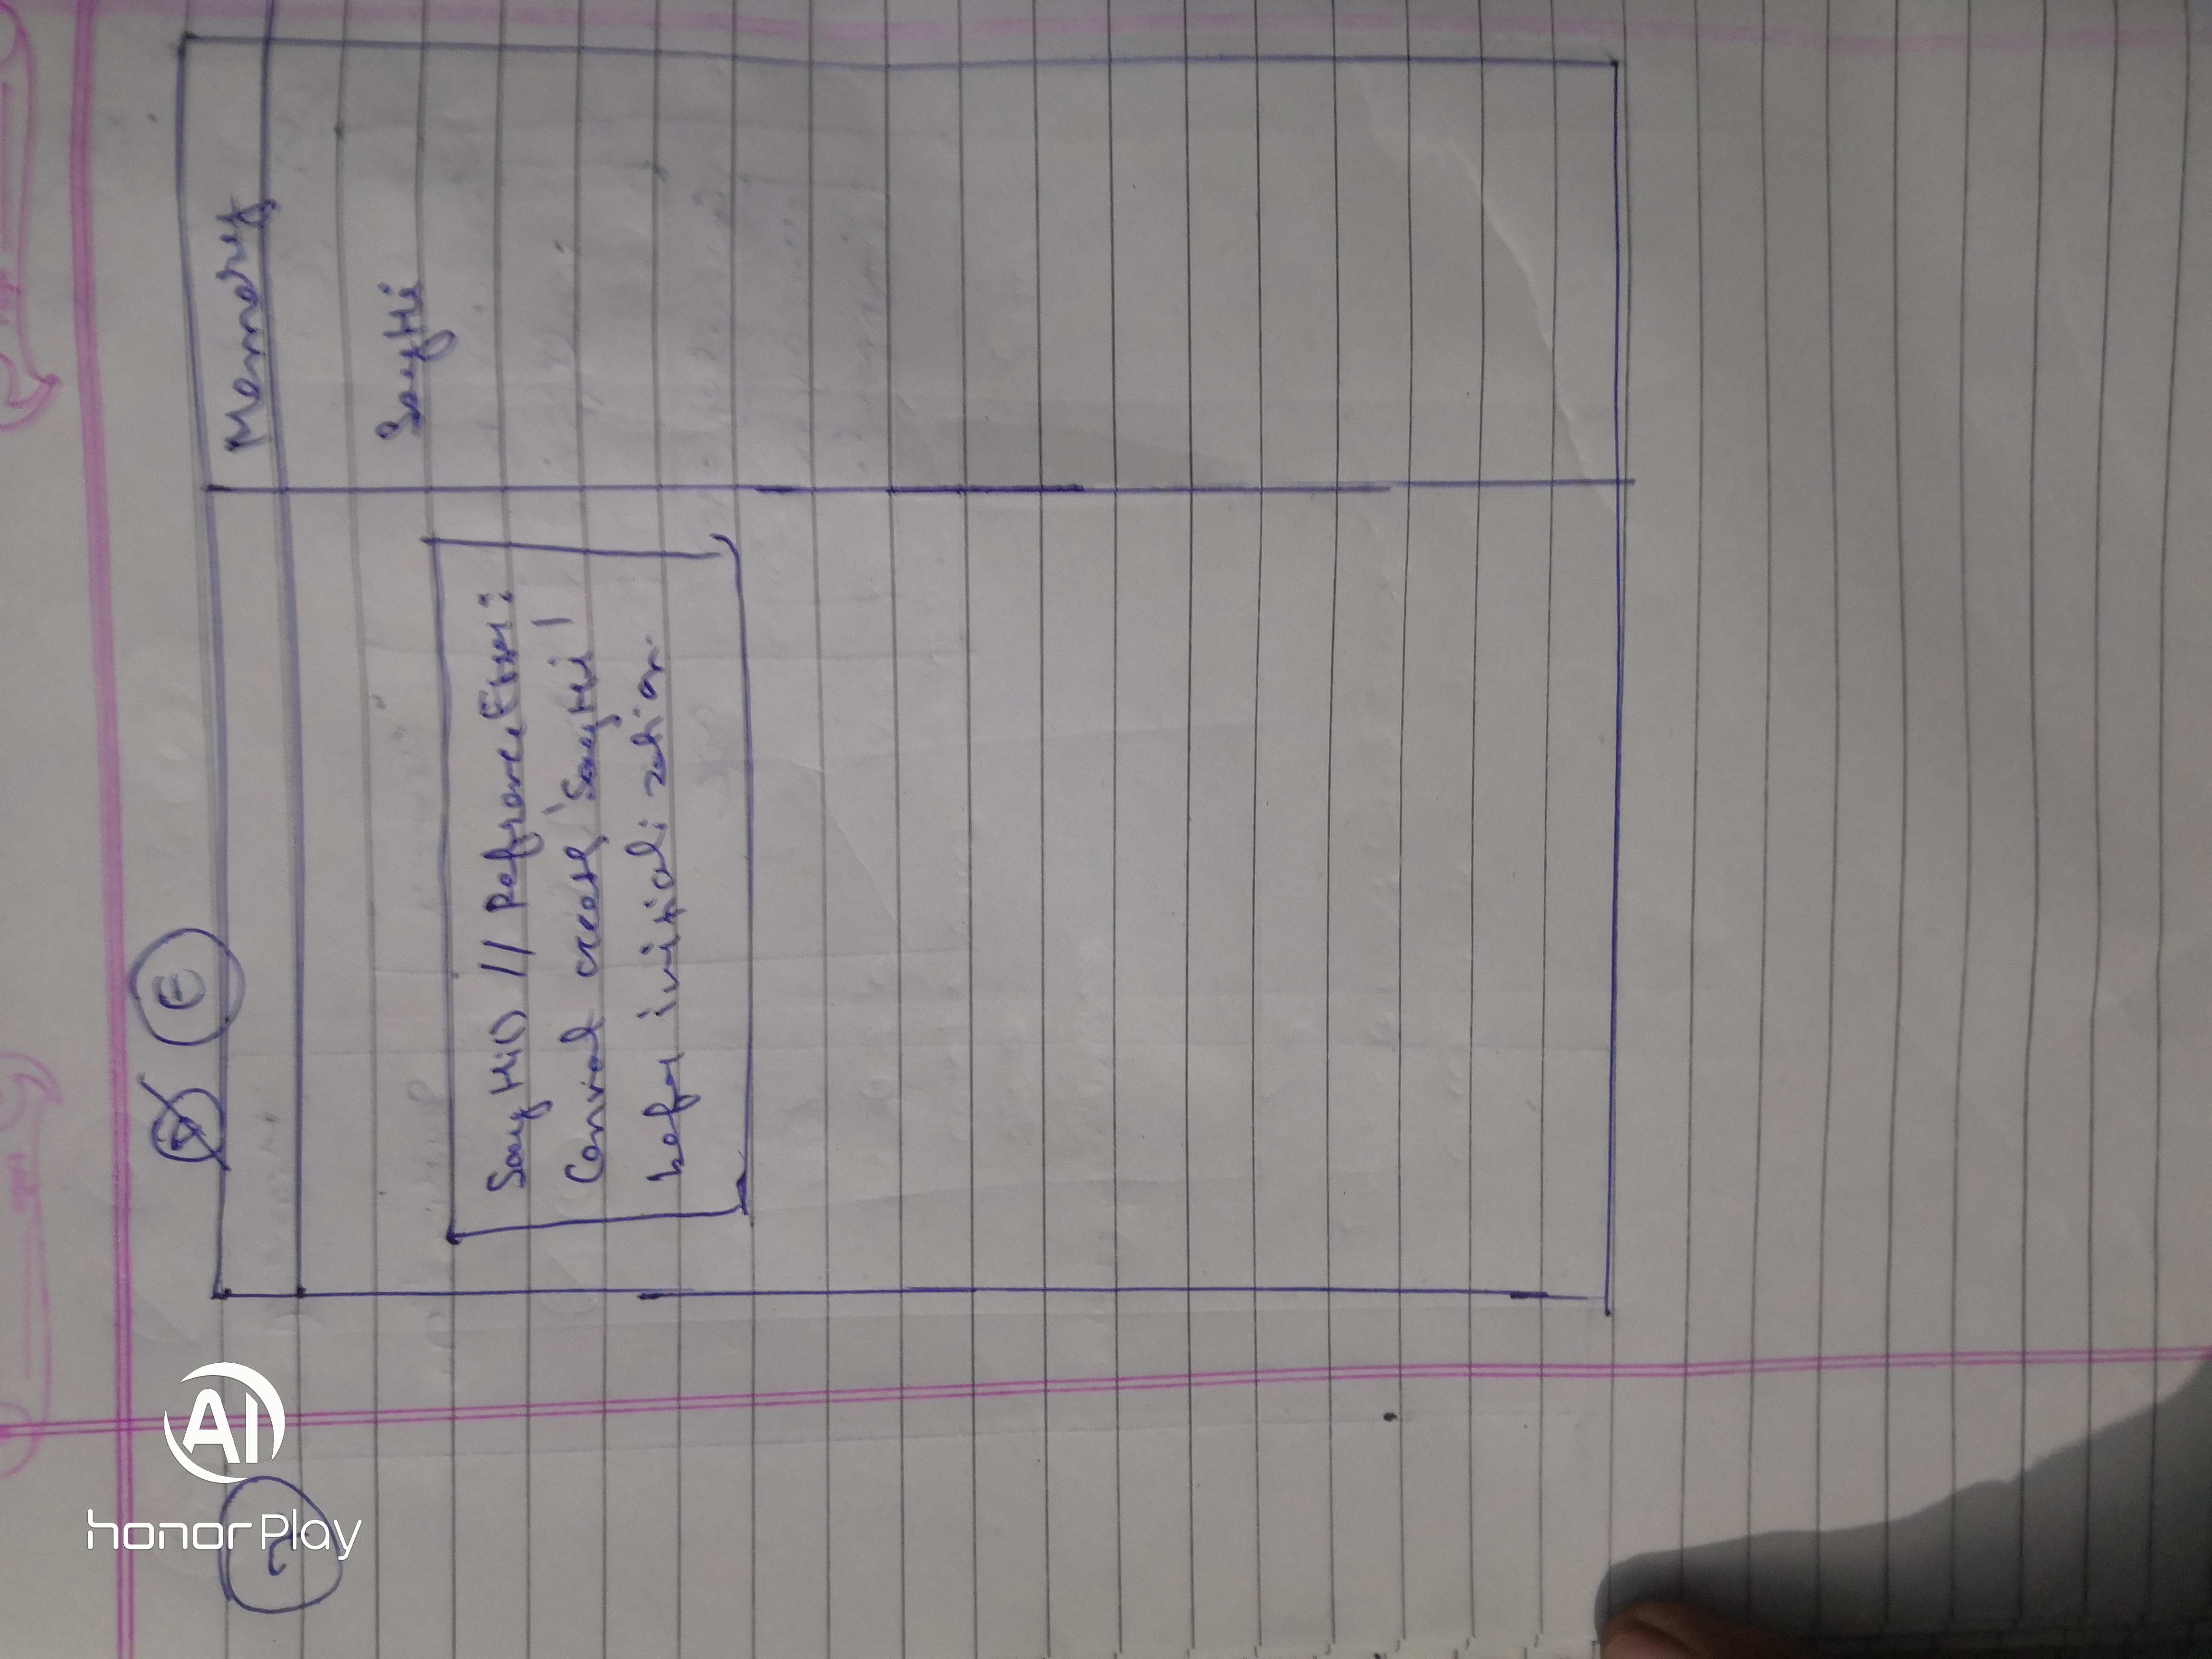 E
Memory
2
SayHi
SayHi() // Refrence Error:
Cannot access 'SayHi'
before initialization.
honor Play
AI